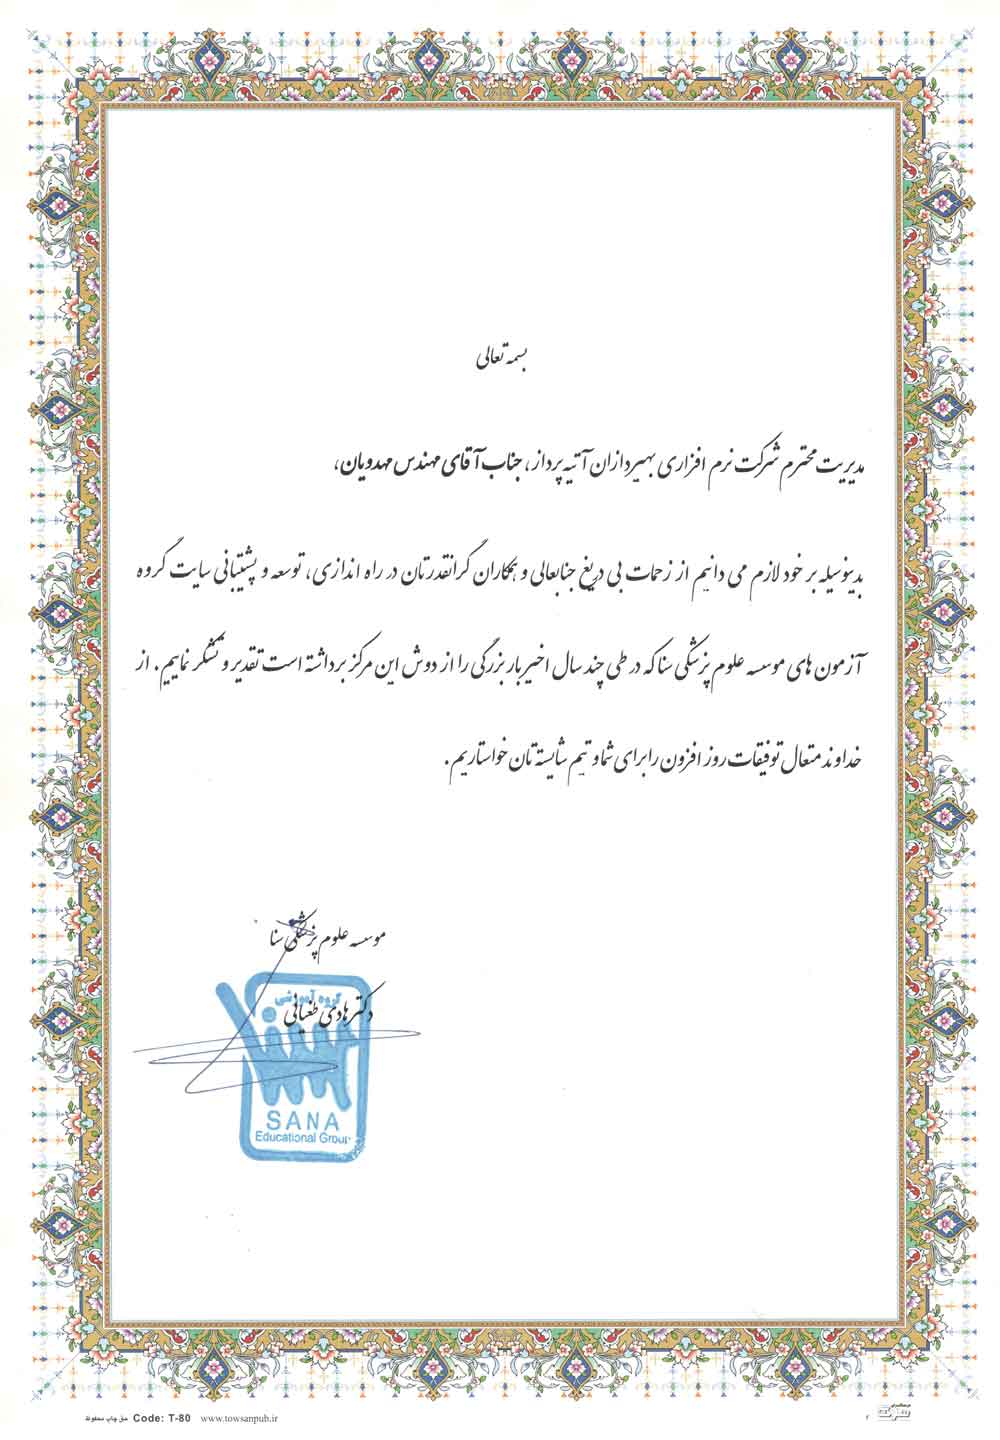 بسمه تعالی
مدیریت محترم شرکت نرم افزاری بهپردازان آتیه پرداز، جناب آقای مهندس مهدویان،
بدینوسیله بر خود لازم می دانیم از زحمات بی دریغ جنابعالی و همکاران گرانقدرتان در راه اندازی، توسعه و پشتیبانی سایت گروه
آزمون های موسسه علوم پزشکی سنا که در طی چند سال اخیر بار بزرگی را از دوش این مرکز برداشته است تقدیر و تشکر نماییم. از
خداوند متعال توفیقات روز افزون را برای شما و تیم شایسته تان خواستاریم.
موسسه علوم پزشکی سنا
گروه آموزشی
دکتر هادی طغیانی
SANA
Educational Group
حق چاپ محفوظ Code: T-80 www.towsanpub.ir